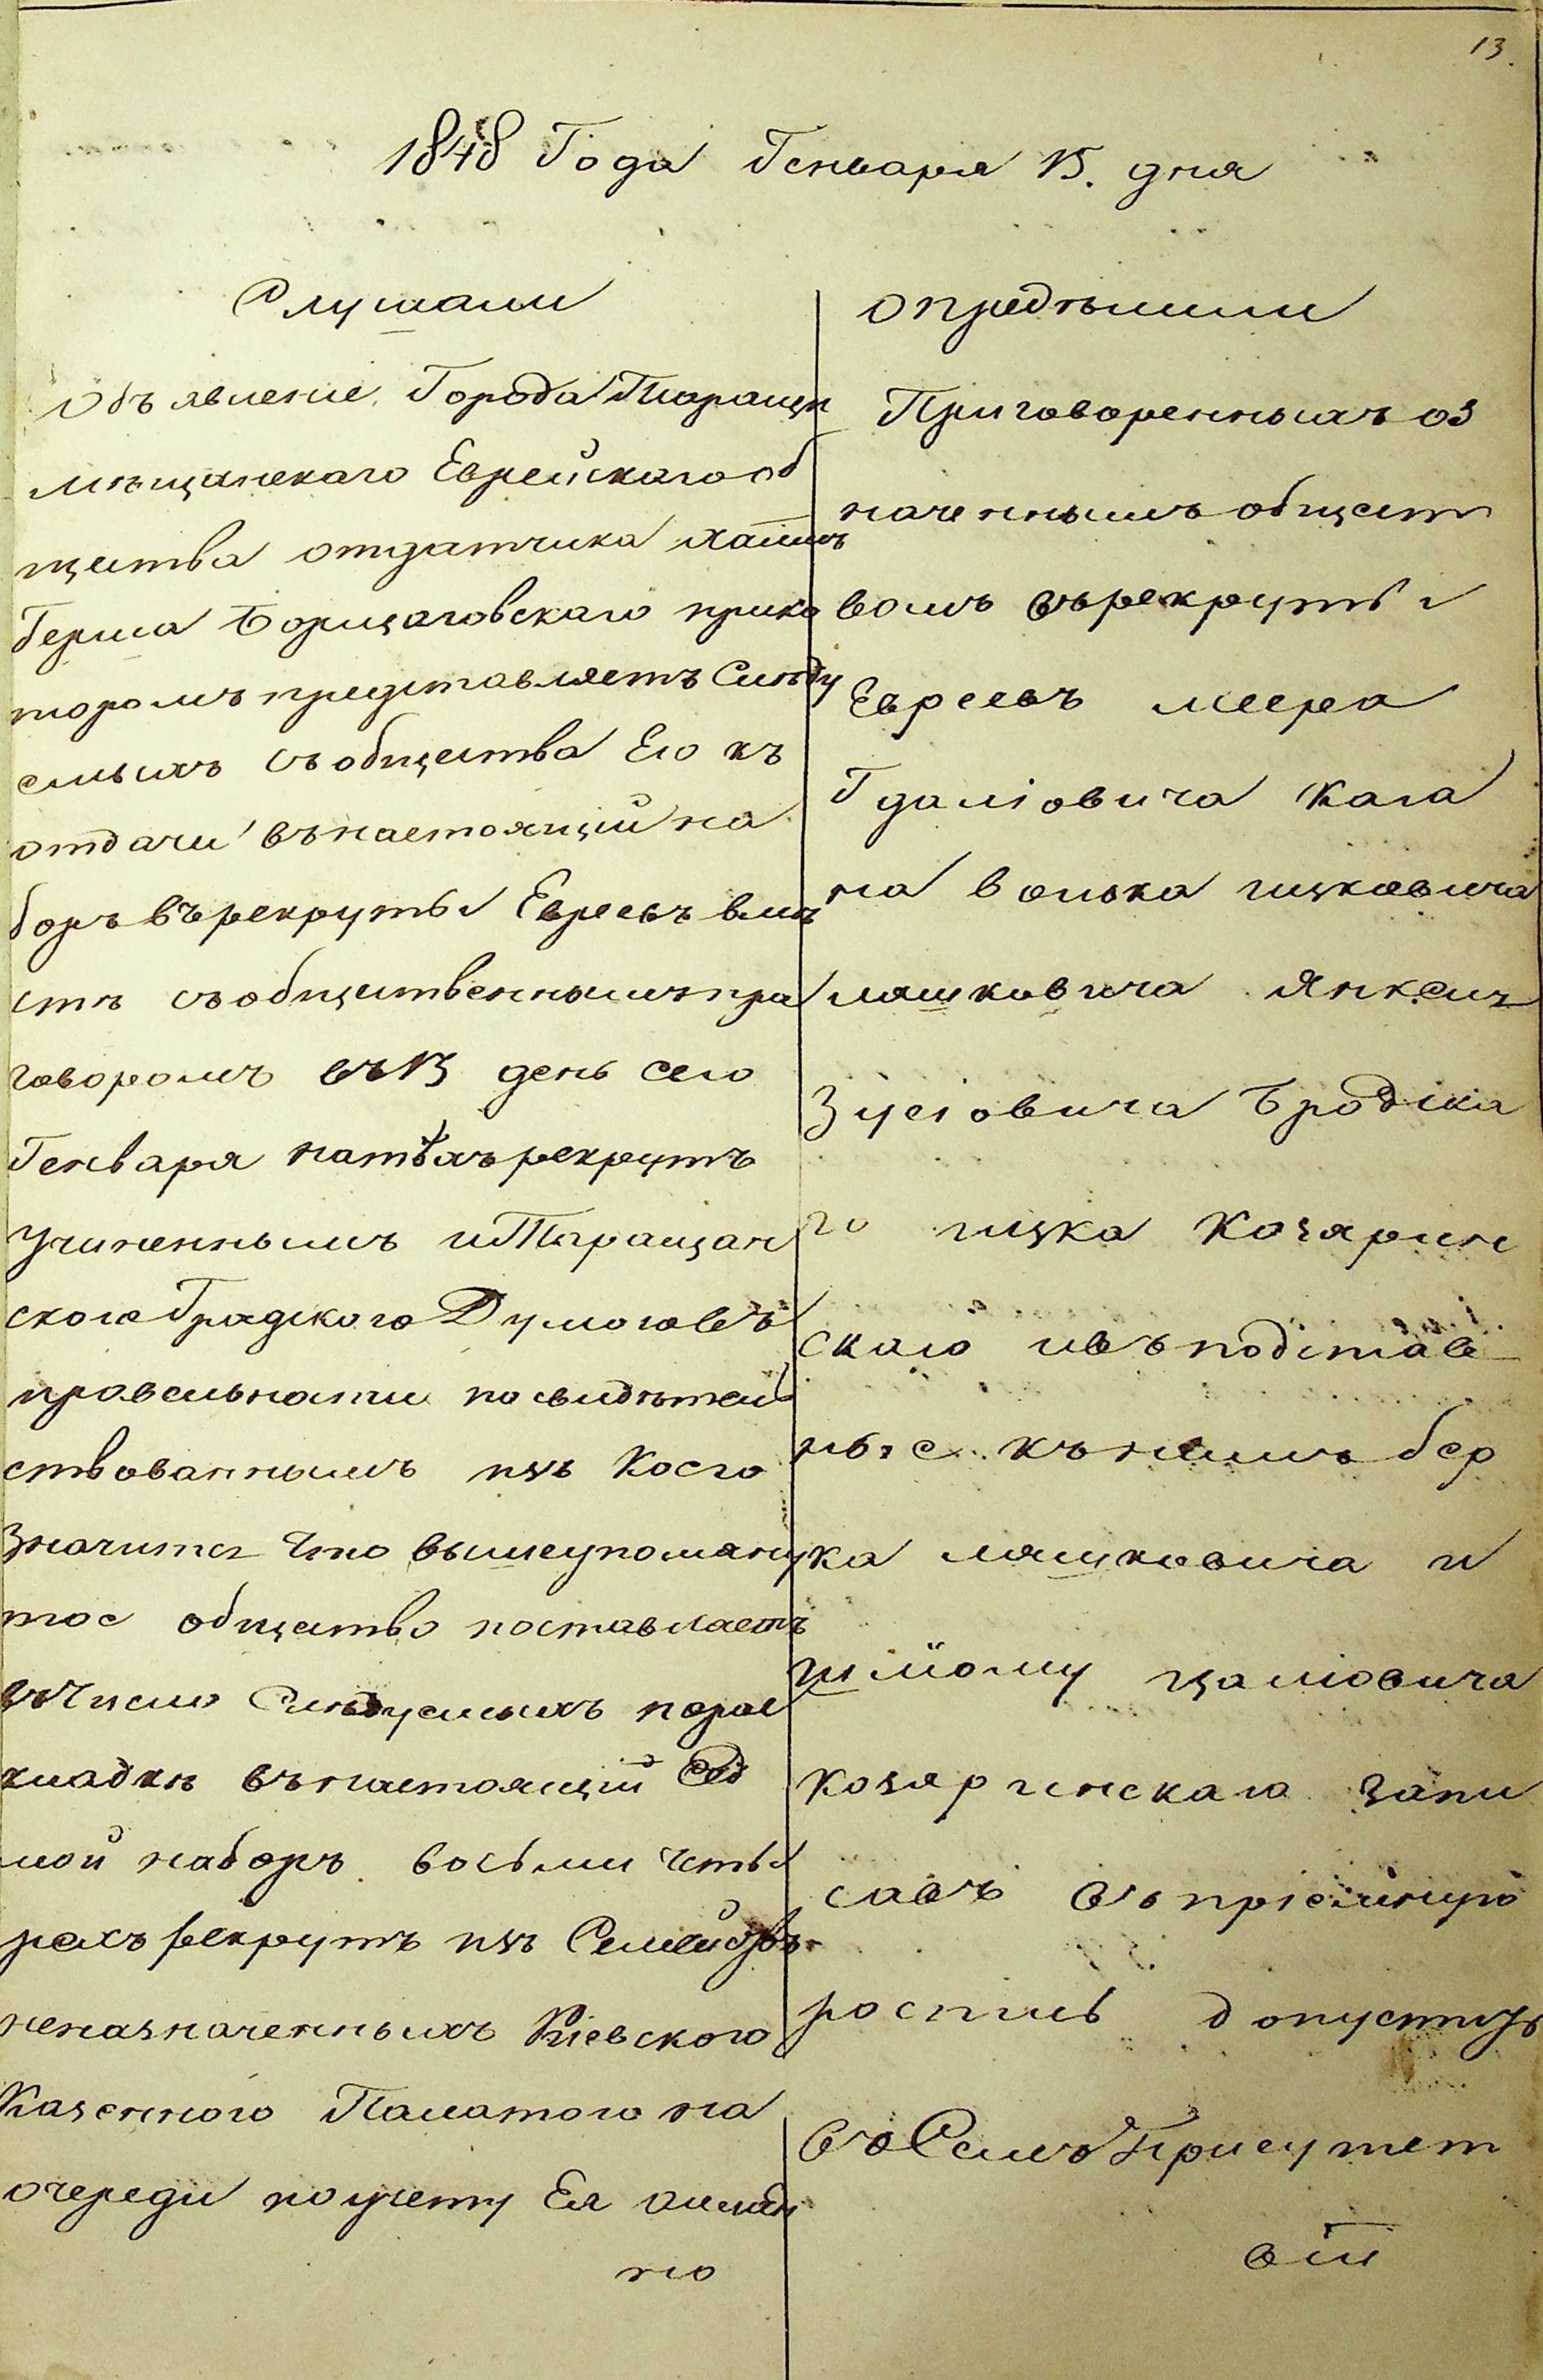 13.
1848 Года Генваря 15. дня
Слушали
Объявление Города Таращи
мѣщанскаго Еврейскаго об
щества отдатчика Хаимъ
Герша Борщаговскаго прико
торомъ представляетъ Слѣду
емыхъ съобщества Его къ
отдачи внастоящий на
боръ върекруты Евреевъ вмѣ
стѣ собщественнымъ при
говоромъ въ 13 день сего
Генваря натѣхъ рекрутъ
учиненнымъ иТаращан
скою Градскою Думою въ
правельности посвидѣтель
ствованнымъ изъ коего
Значится что вышеупомяну
тое общество поставляетъ
вЧисло Слѣдуемыхъ порас
кладкѣ внастоящий Сед
мой наборъ восьми четы
рехъ рекрутъ изъ Семействъ
неназначенныхъ Кіевскою
Казенною Палатою на
очереди поучету Ея а именн
но
опредѣлили
Приговоренныхъ оз
наченнымъ общест
вомъ въ рекруты
Евреевъ меера
Гдаліовича Кага
на волька ицковича
ляшковича Янкеля
Зусіовича Бродска
го ицка Козарин
скаго ивъ подстав
ные къ нимъ бер
ка ляшковича и
шліому
Козаринскаго запи
савъ въ пріемную
роспись допустить
въ Семъ Присутст
віи